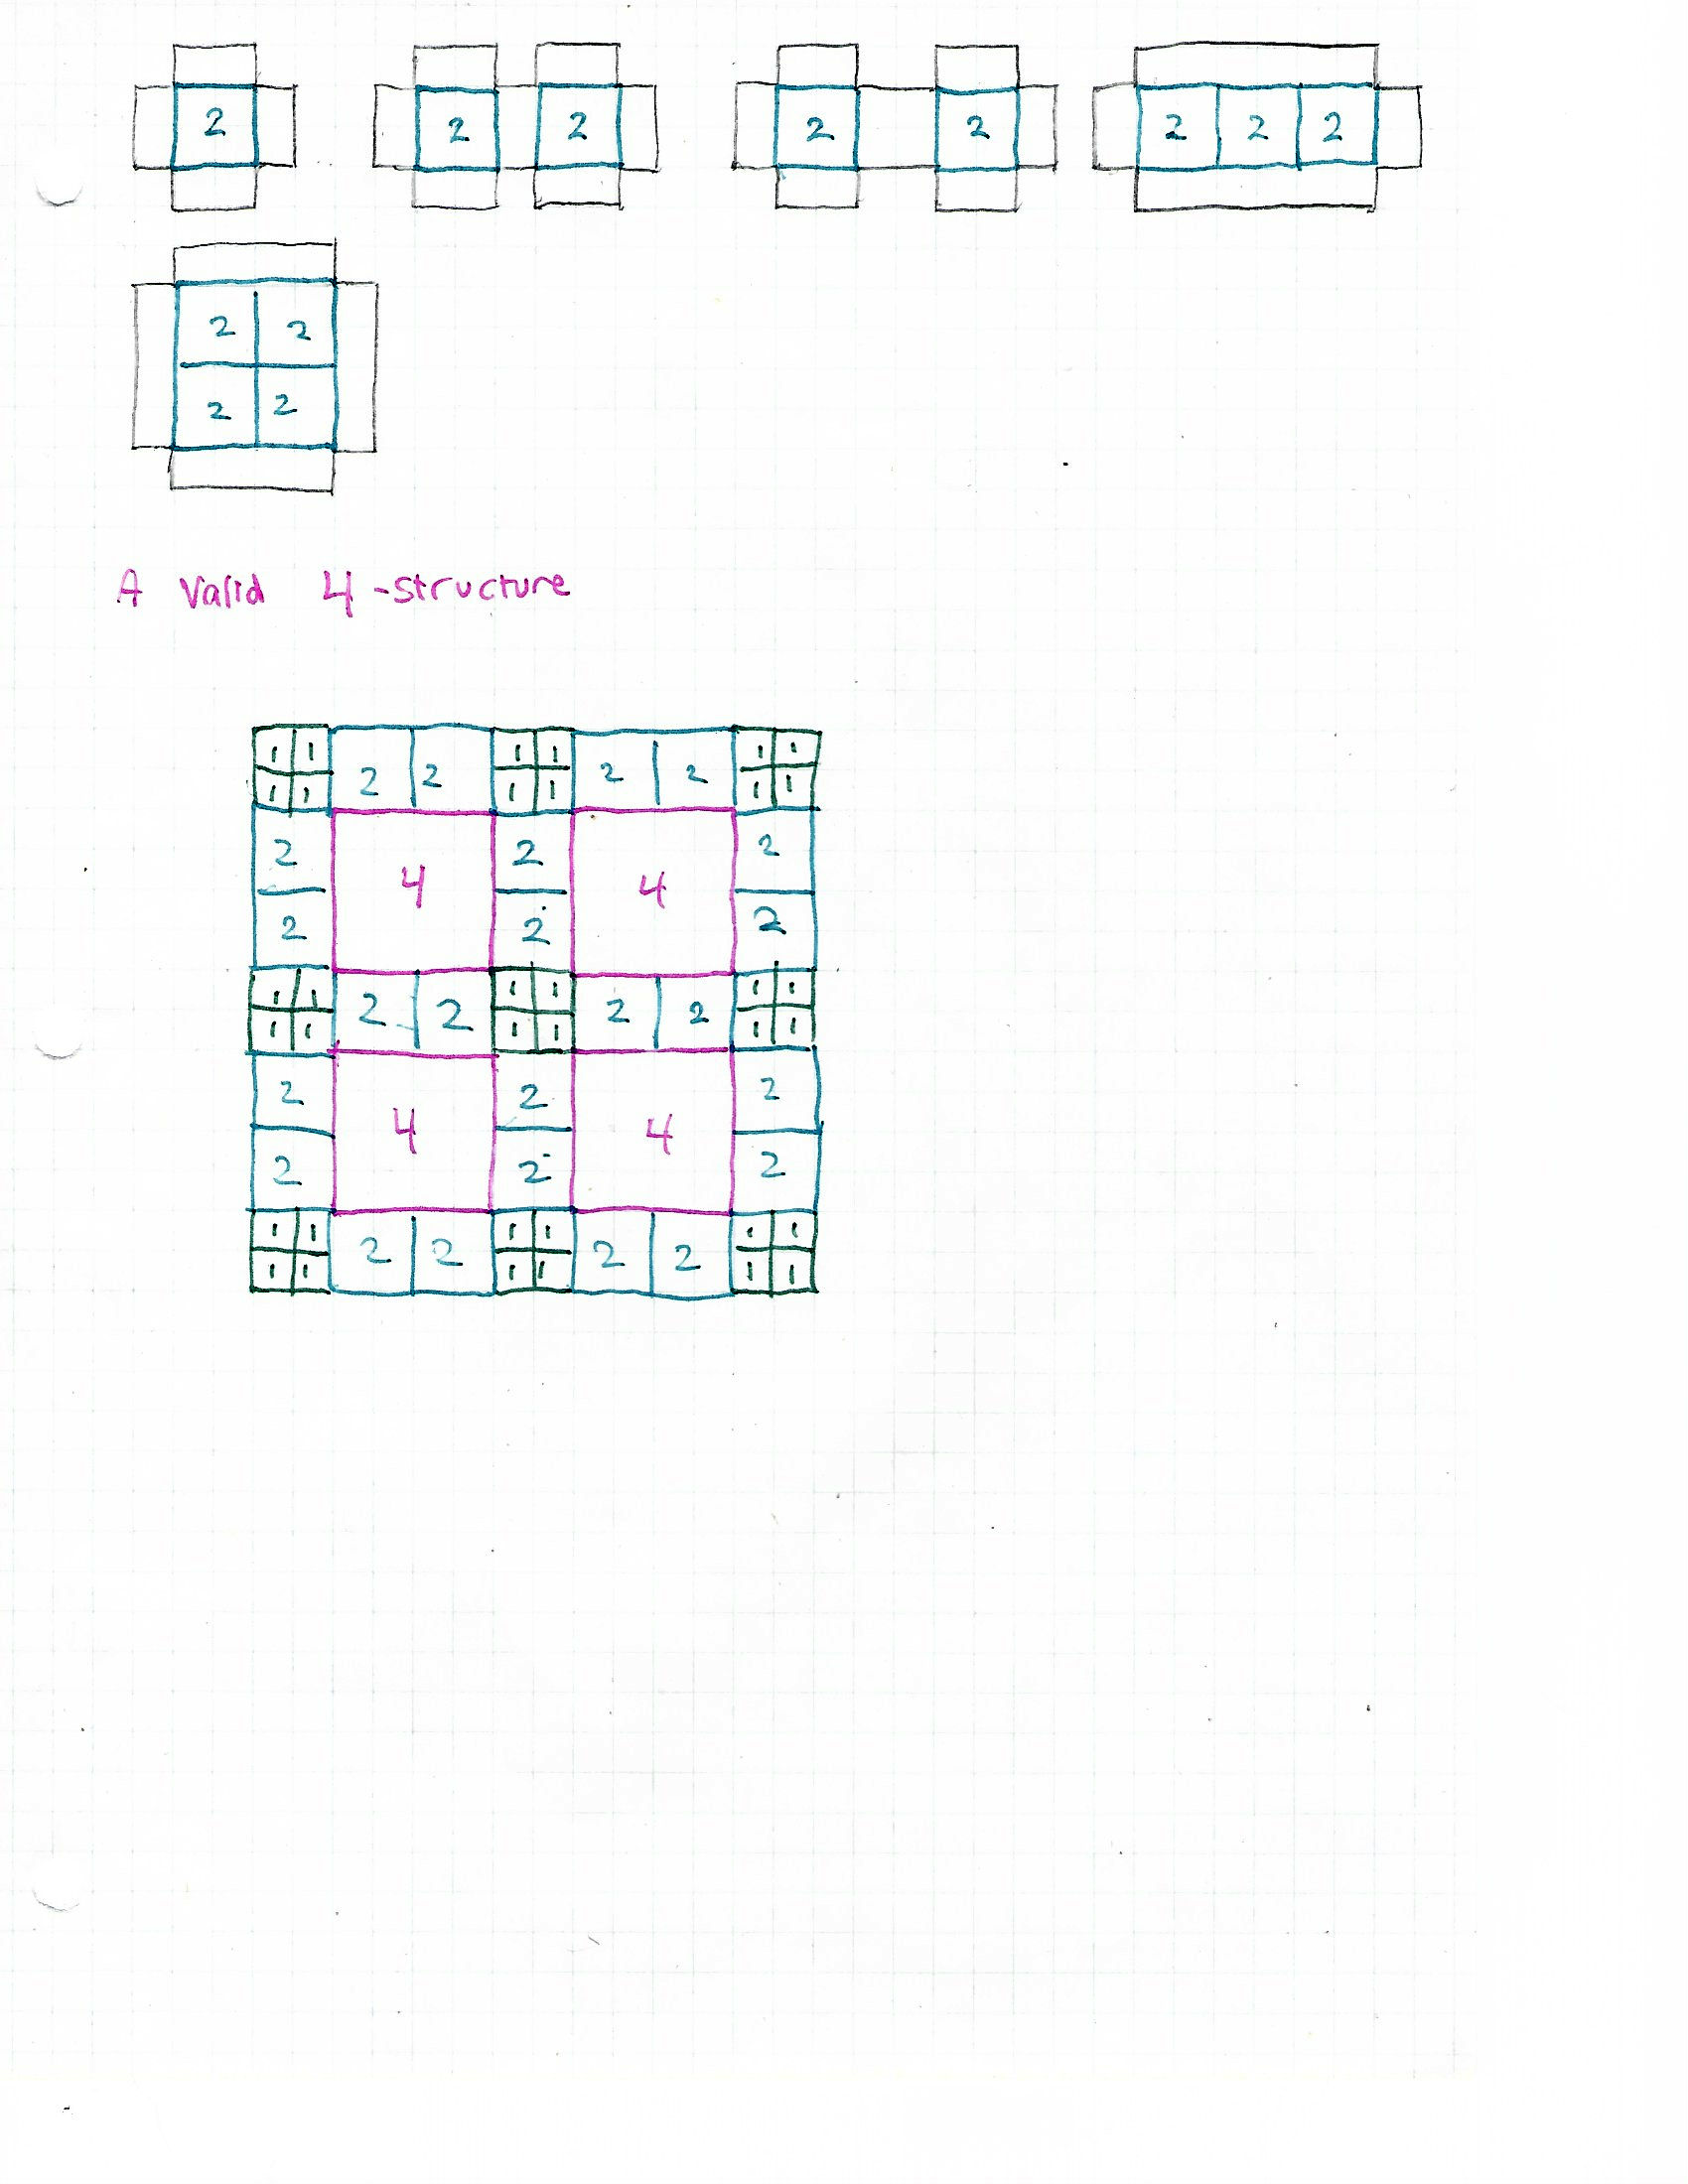 2 2 2 2 2 2 2 2
2 2
2 2
A Valid 4-structure
1 1 2 2 1 1 2 2 1 1
1 1 1 1 1 1
2 4 2 4 2
2 2 2
1 1 2 2 1 1 2 2 1 1
1 1 1 1 1 1
2 4 2 4 2
2 2 2
1 1 2 2 1 1 2 2 1 1
1 1 1 1 1 1